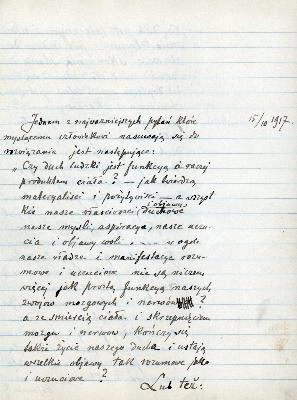 Jednem z najważniejszych pytań które
15/10 1917
myślącemu człowiekowi nasuwają się do
rozwiązania jest następujące:
„Czy duch ludzki jest funkcyą a raczej
produktem ciała? – jak twierdzą
materyaliści i pozytywiści – a wszyst
kie nasze właściwości duchowe
objawy
nasze myśli, aspiracya, nasze uczu-
cia i objawy woli .... w ogóle
nasze władze i manifestacye rozu-
mowe i uczuciowe nie są niczem
więcej jak prostą funkcyą naszych
zwojów mózgowych i nerwów ?
a ze śmiercią ciała i skrzepnięciem
mózgu i nerwów, kończy się
także życie naszego ducha i ustają
wszelkie objawy tak rozumowe jako
i uczuciowe ?
Lub też: